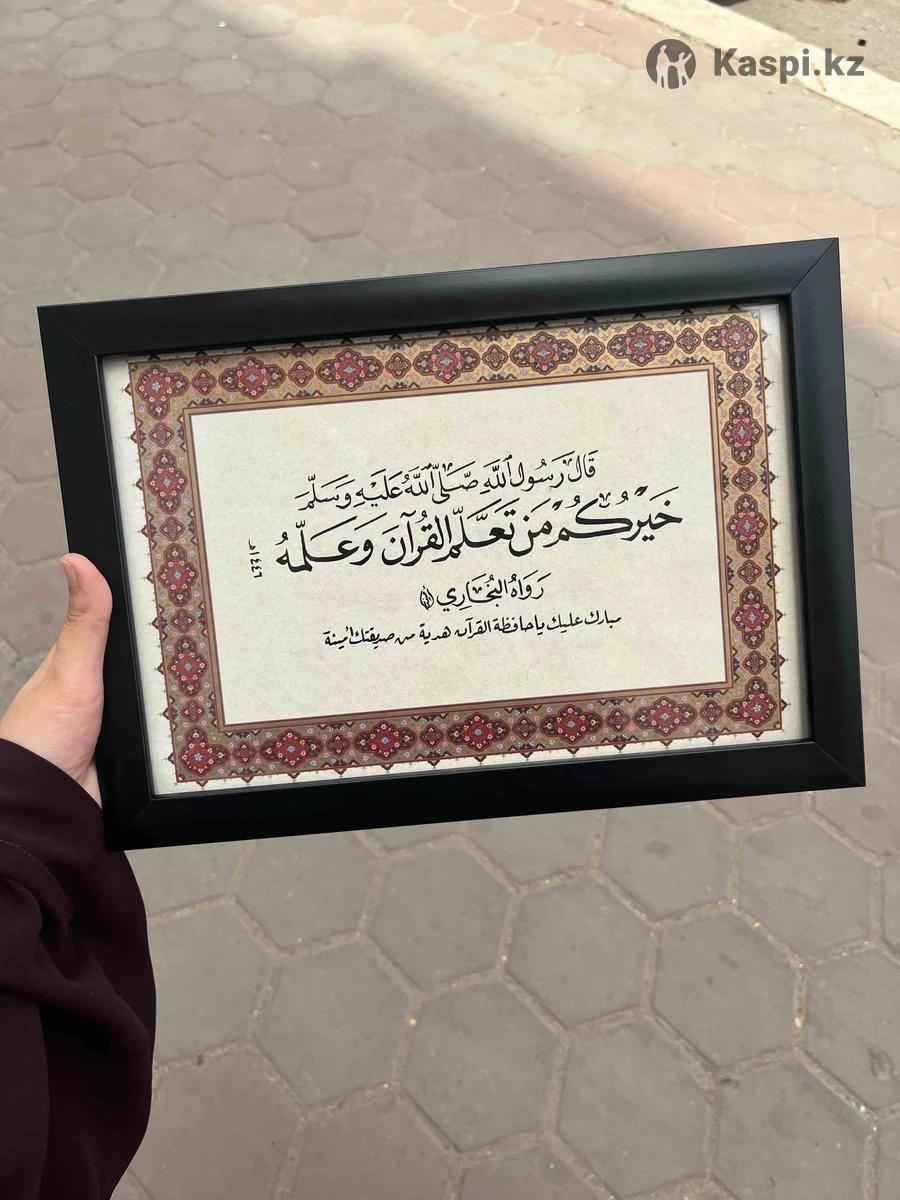 Kaspi.kz
قَالَ رَسُولُ ٱللَّهِ صَلَّى ٱللَّهُ عَلَيْهِ وَسَلَّمَ
خَيْرُكُمْ مَن تَعَلَّمَ القُرْآنَ وَعَلَّمَهُ
رَوَاهُ البُخَارِي
مبارك عليك يا حافظة القرآن هدية من صديقتك أمينة